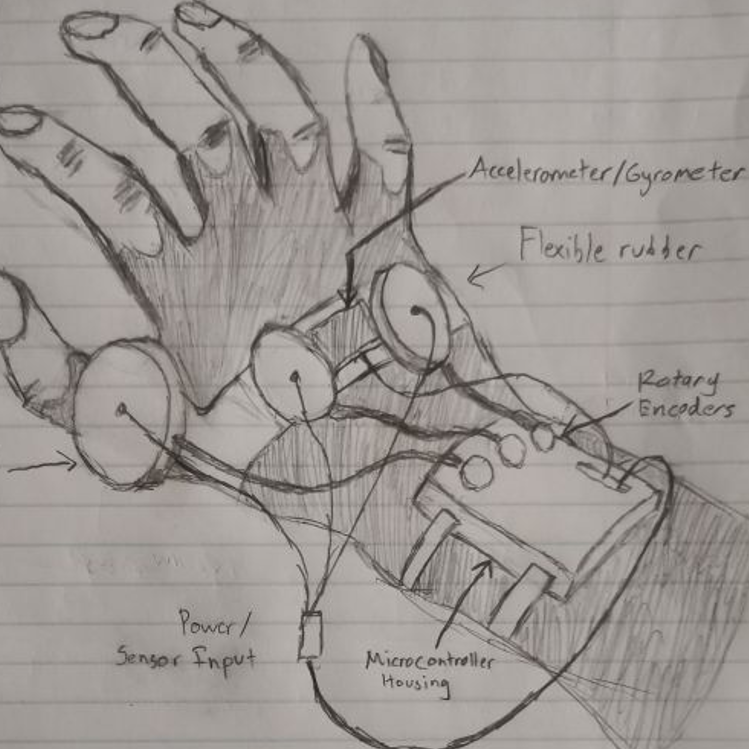 Accelerometer/Gyrometer
Flexible rubber
Rotary
Encoders
Power/
Sensor Input
Microcontroller
Housing